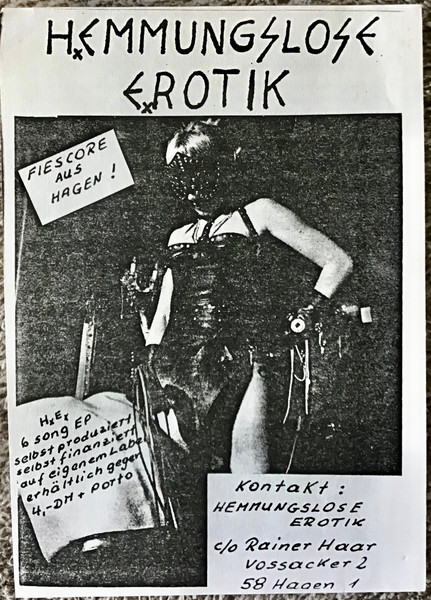 HxEMMUNGSLOSE
ExROTIK
FIESCORE
AUS
HAGEN !
HxEx
6 song EP
selbst produziert
selbst finanziert
auf eigenem Label
erhältlich gegen
4,-DM + Porto
Kontakt :
HEMMUNGSLOSE
EROTIK
c/o Rainer Haar
Vossacker 2
58 Hagen 1